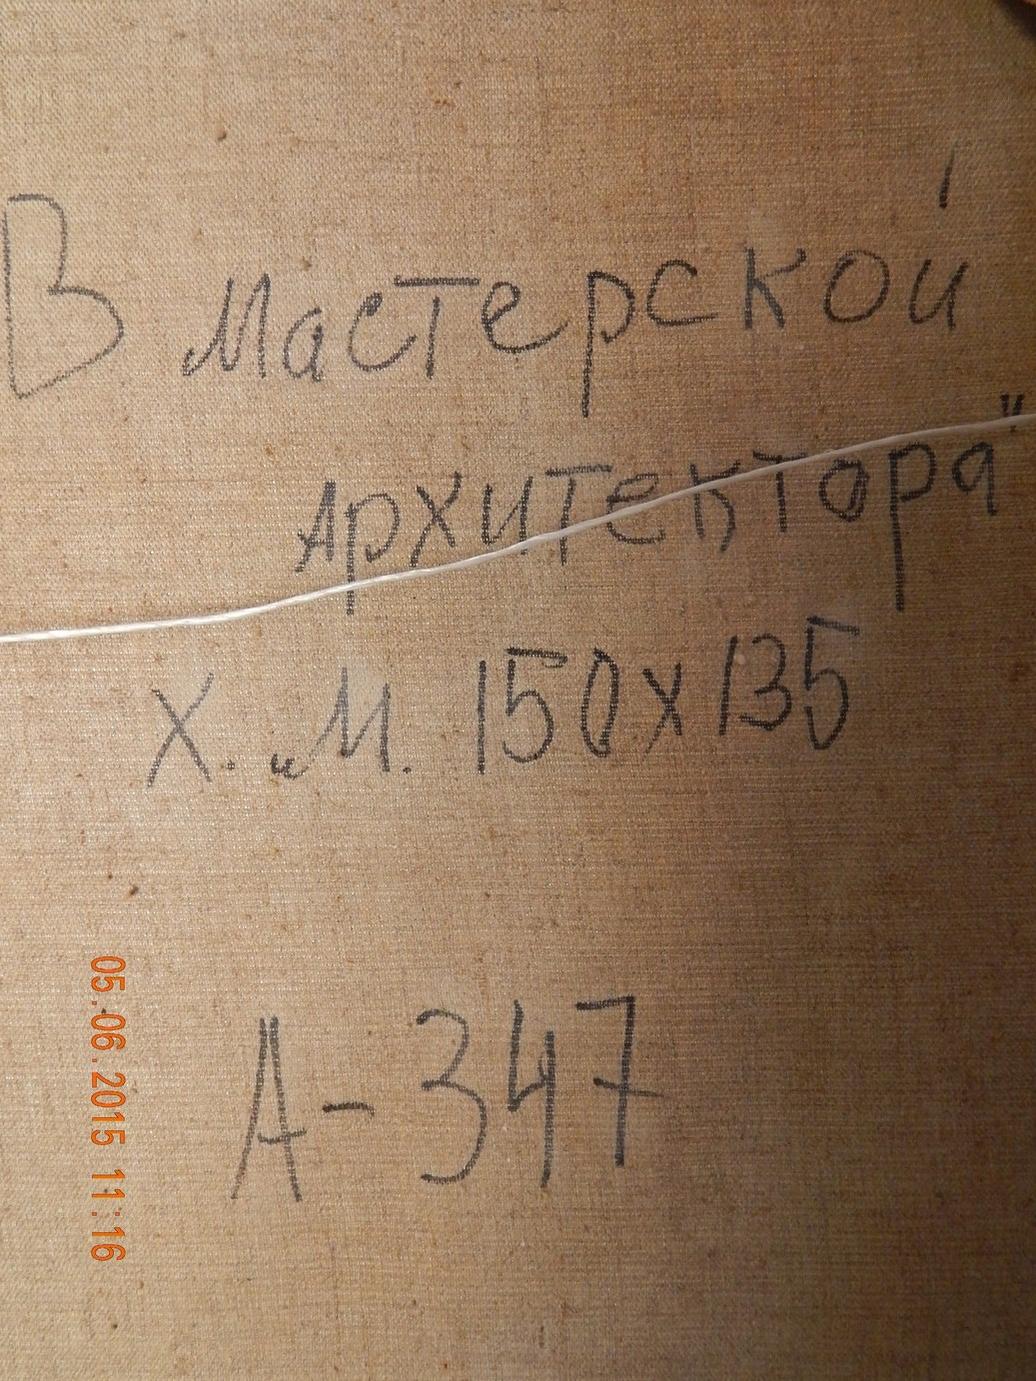 В мастерской
Архитектора"
Х. м. 150х135
А-347
05.06.2015 11:16